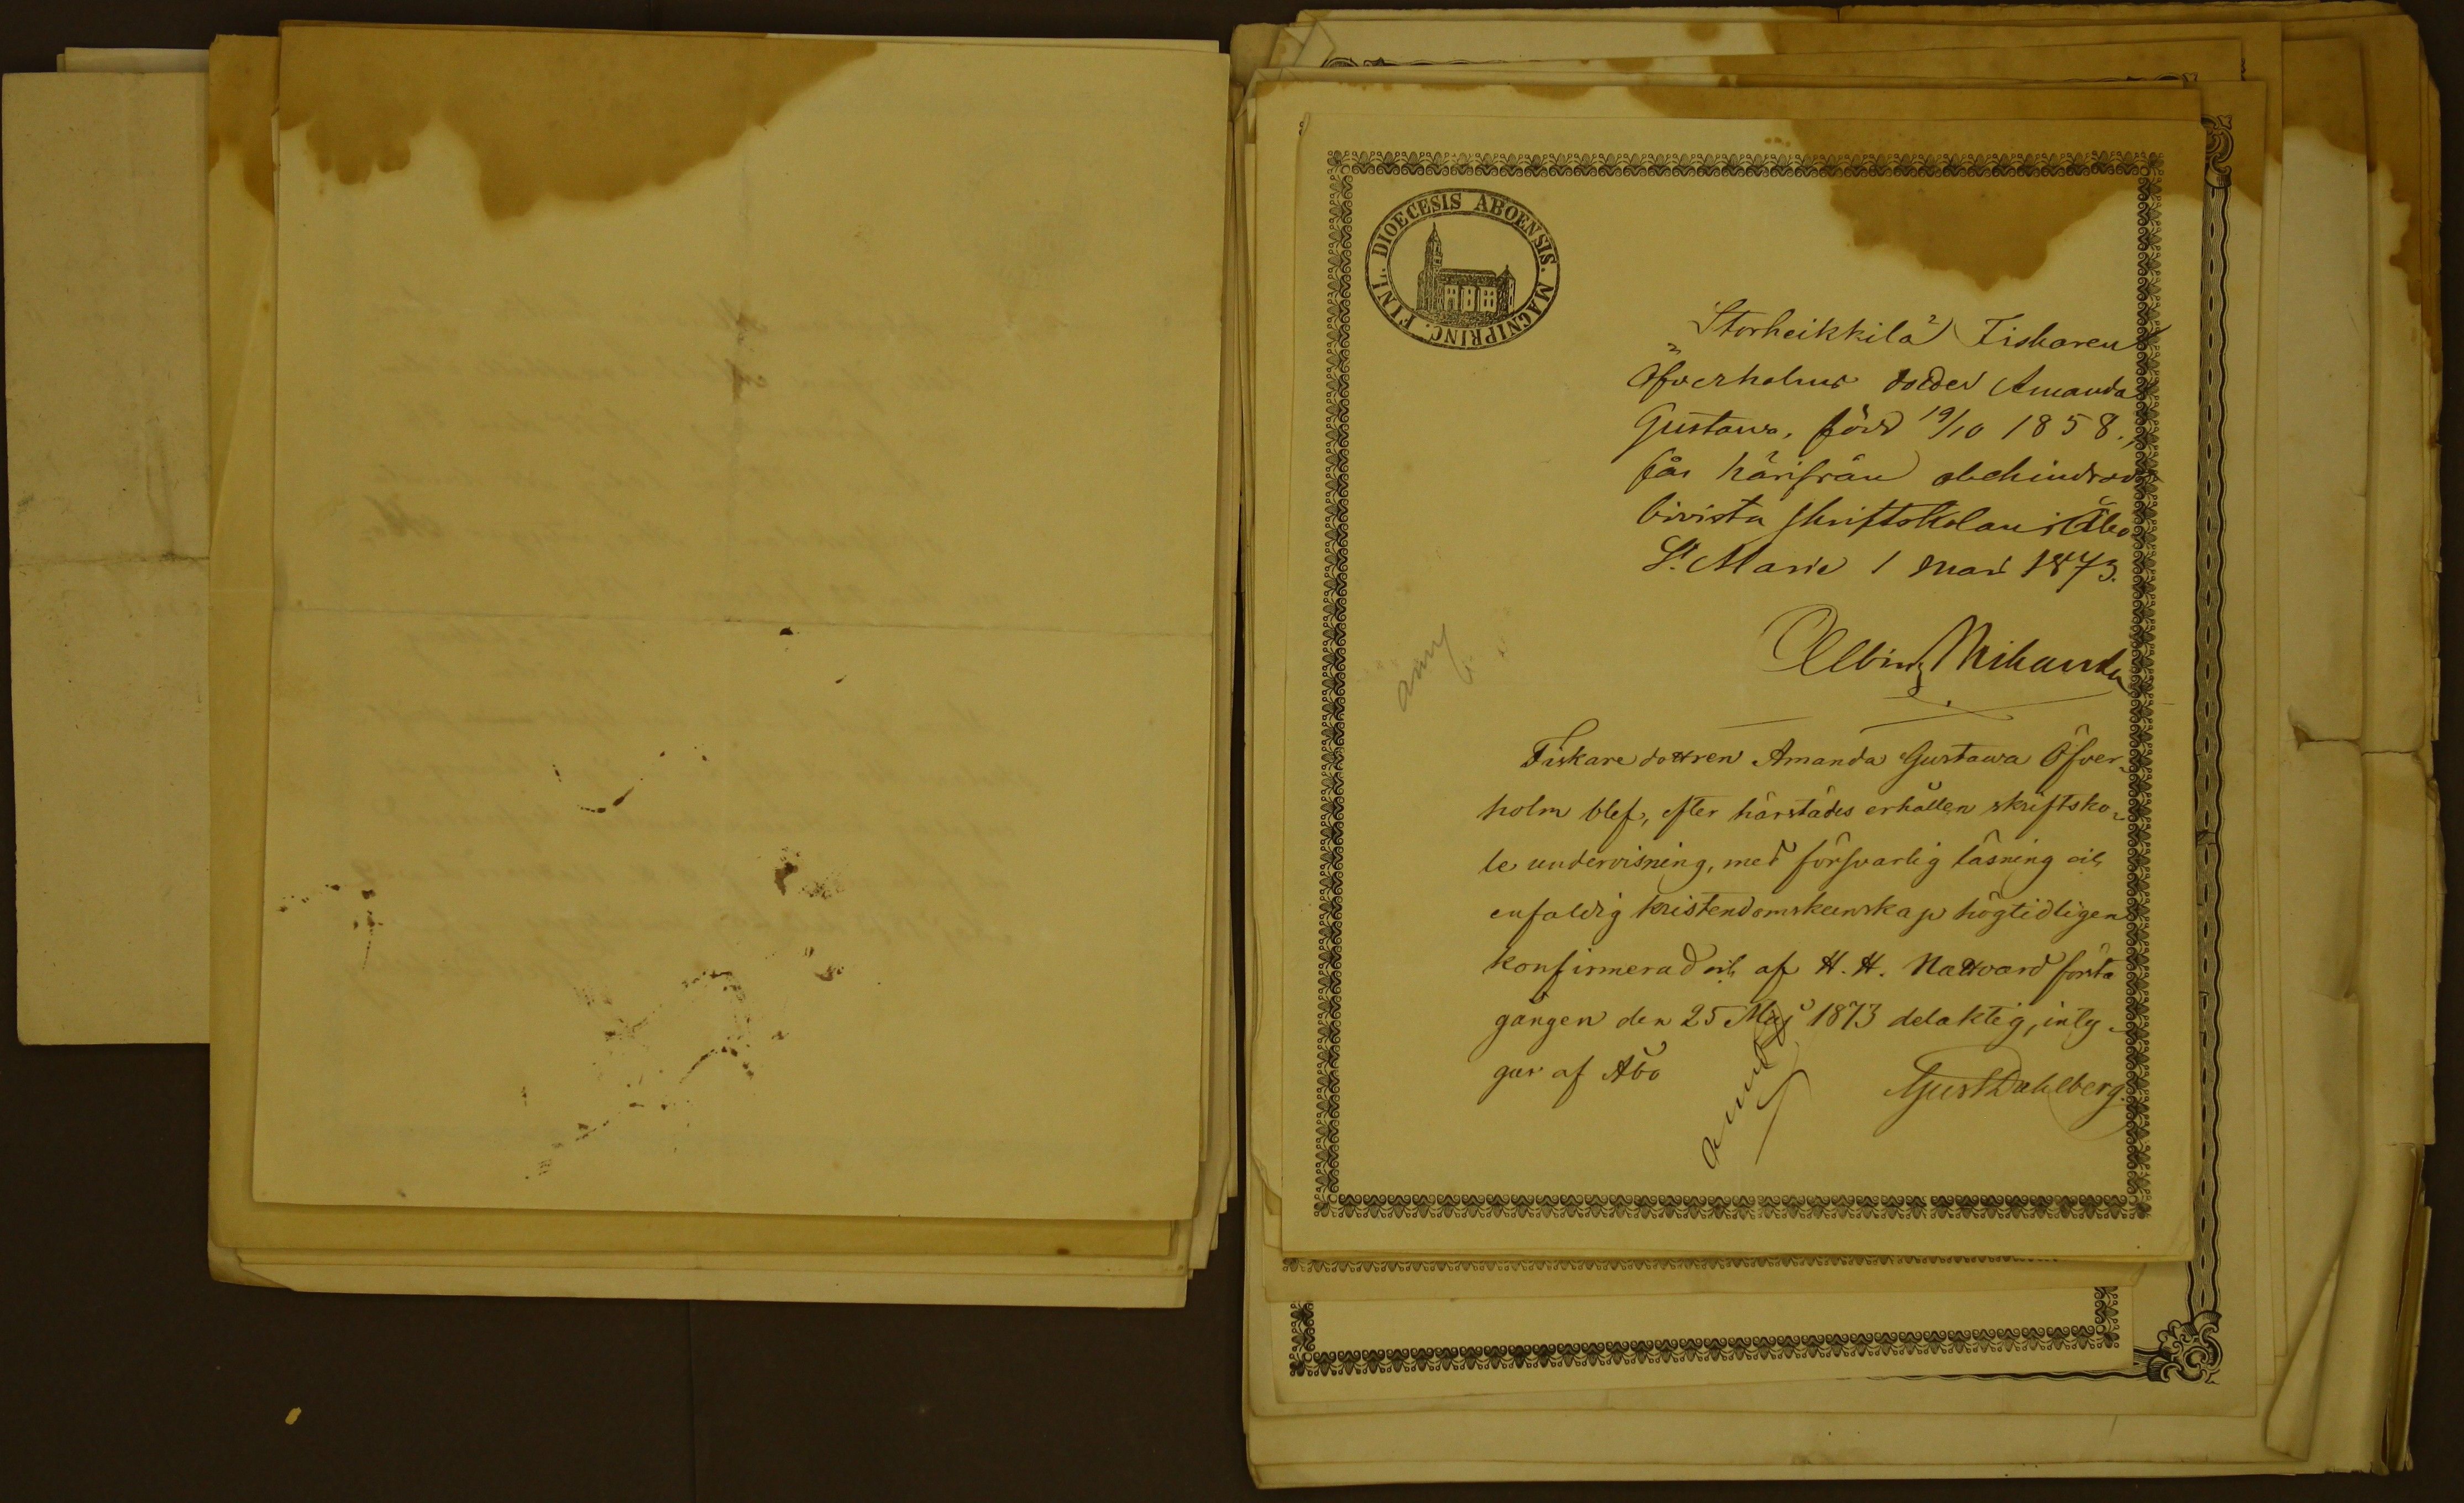 DIOECESIS ABOENSIS. MAGNIPRINC. FINL.
Storheikkilä Fiskaren
Öfverholms dotter Amanda
Gustava, född 19/10 1858.,
får härifrån obehindrad
bivista skriftskolan i Åbo
St. Marie 1 Mars 1873.
Albin
Fiskare dottren Amanda Gustava Öfver-
holm blef, efter härstädes erhållen skriftsko-
le undervisning, med försvarlig läsning och
enfaldig kristendomskunskap högtidligen
konfirmerad och af H. H. Nattvard första
gången den 25 Maj 1873 delaktig, inty-
gar af Åbo
Gust Dahlberg.
anm
anm